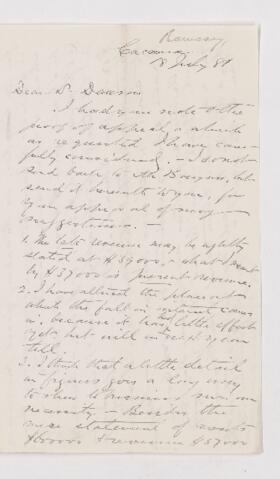 Ramsay,
Cacouna
8 July 81
Dear Dr Dawson
I had your note & the
proof of appeal, which
as requested I have care-
fully considered. — I do not
send back to Mr Baynes, but
send it herewith to you, for
your approval of my
suggestions. —
1. The late revenue may be rightly
stated at $39000 — what I meant
by $37000 is present revenue.
2. I have altered the place at
which the fall in interest comes
in, because it has little effect
yet but will in next year
tell.
3. I think that a little detail
in figures goes a long way
to show to business men our
necessity — Besides the
mere statement of
revenue $37000